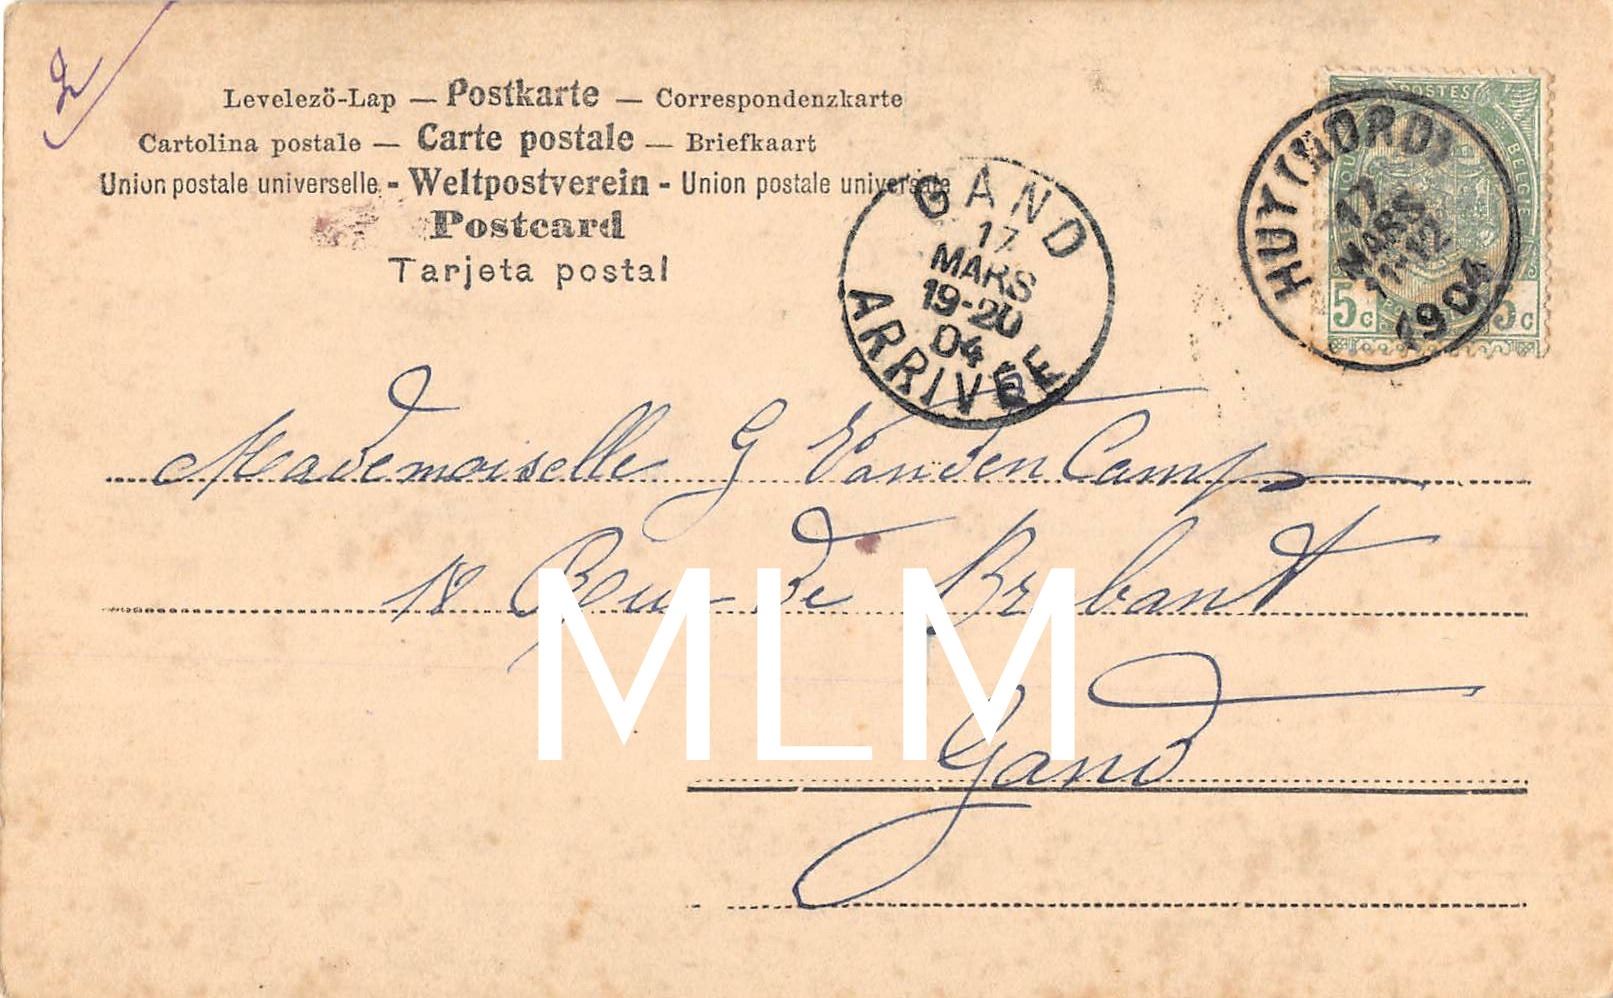 2
Levelezö-Lap — Postkarte — Correspondenzkarte
Cartolina postale — Carte postale — Briefkaart
Union postale universelle - Weltpostverein - Union postale universale
Postcard
Tarjeta postal
GAND
17
MARS
19-20
04
ARRIVÉE
HUY (NORD)
17
MARS
11-12
1904
POSTES
BELG
5c 5c
Mademoiselle G Vanden Camp
18 Rue de Brabant
Gand
MLM